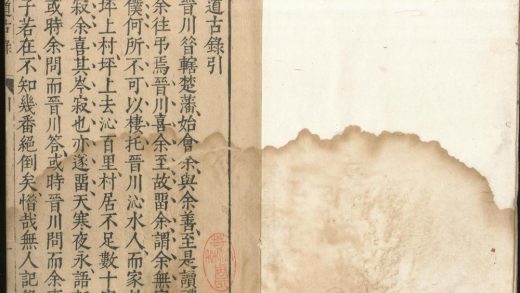 道古錄引
晉川昝轄楚藩始會余與余善至是讀禮
余往弔焉晉川喜余至故畱余謂余無家
僕何所不可以棲托晉川沁水人而家於
坪上村坪上去沁百里村居不足數十家
寂余喜其岑寂也亦遂畱天寒夜永語話
或時余問而晉川答或時晉川問而余
子若在不知幾番絕倒矣惜哉無人記錄
道古錄
引